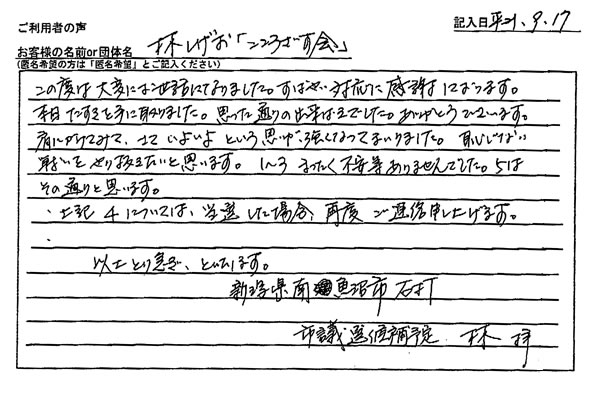 ご利用者の声
記入日 平21.9.17
お客様の名前or団体名 林しげお「こころざす会」
(匿名希望の方は「匿名希望」とご記入ください)
この度は大変にお世話になりました。すばやい対応に感謝しております。
本日たすきを手に取りました。思った通りの出来ばえでした。ありがとうございます。
肩にかけてみて、さていよいよという思いが強くなってまいりました。恥じない
戦いをやり抜きたいと思います。1~3 まったく不安等ありませんでした。5は
その通りと思います。
・上記4については、当選した場合、再度ご返信申し上げます。
・
以上とり急ぎ、といたします。
新潟県南魚沼市石打
市議選候補予定 林